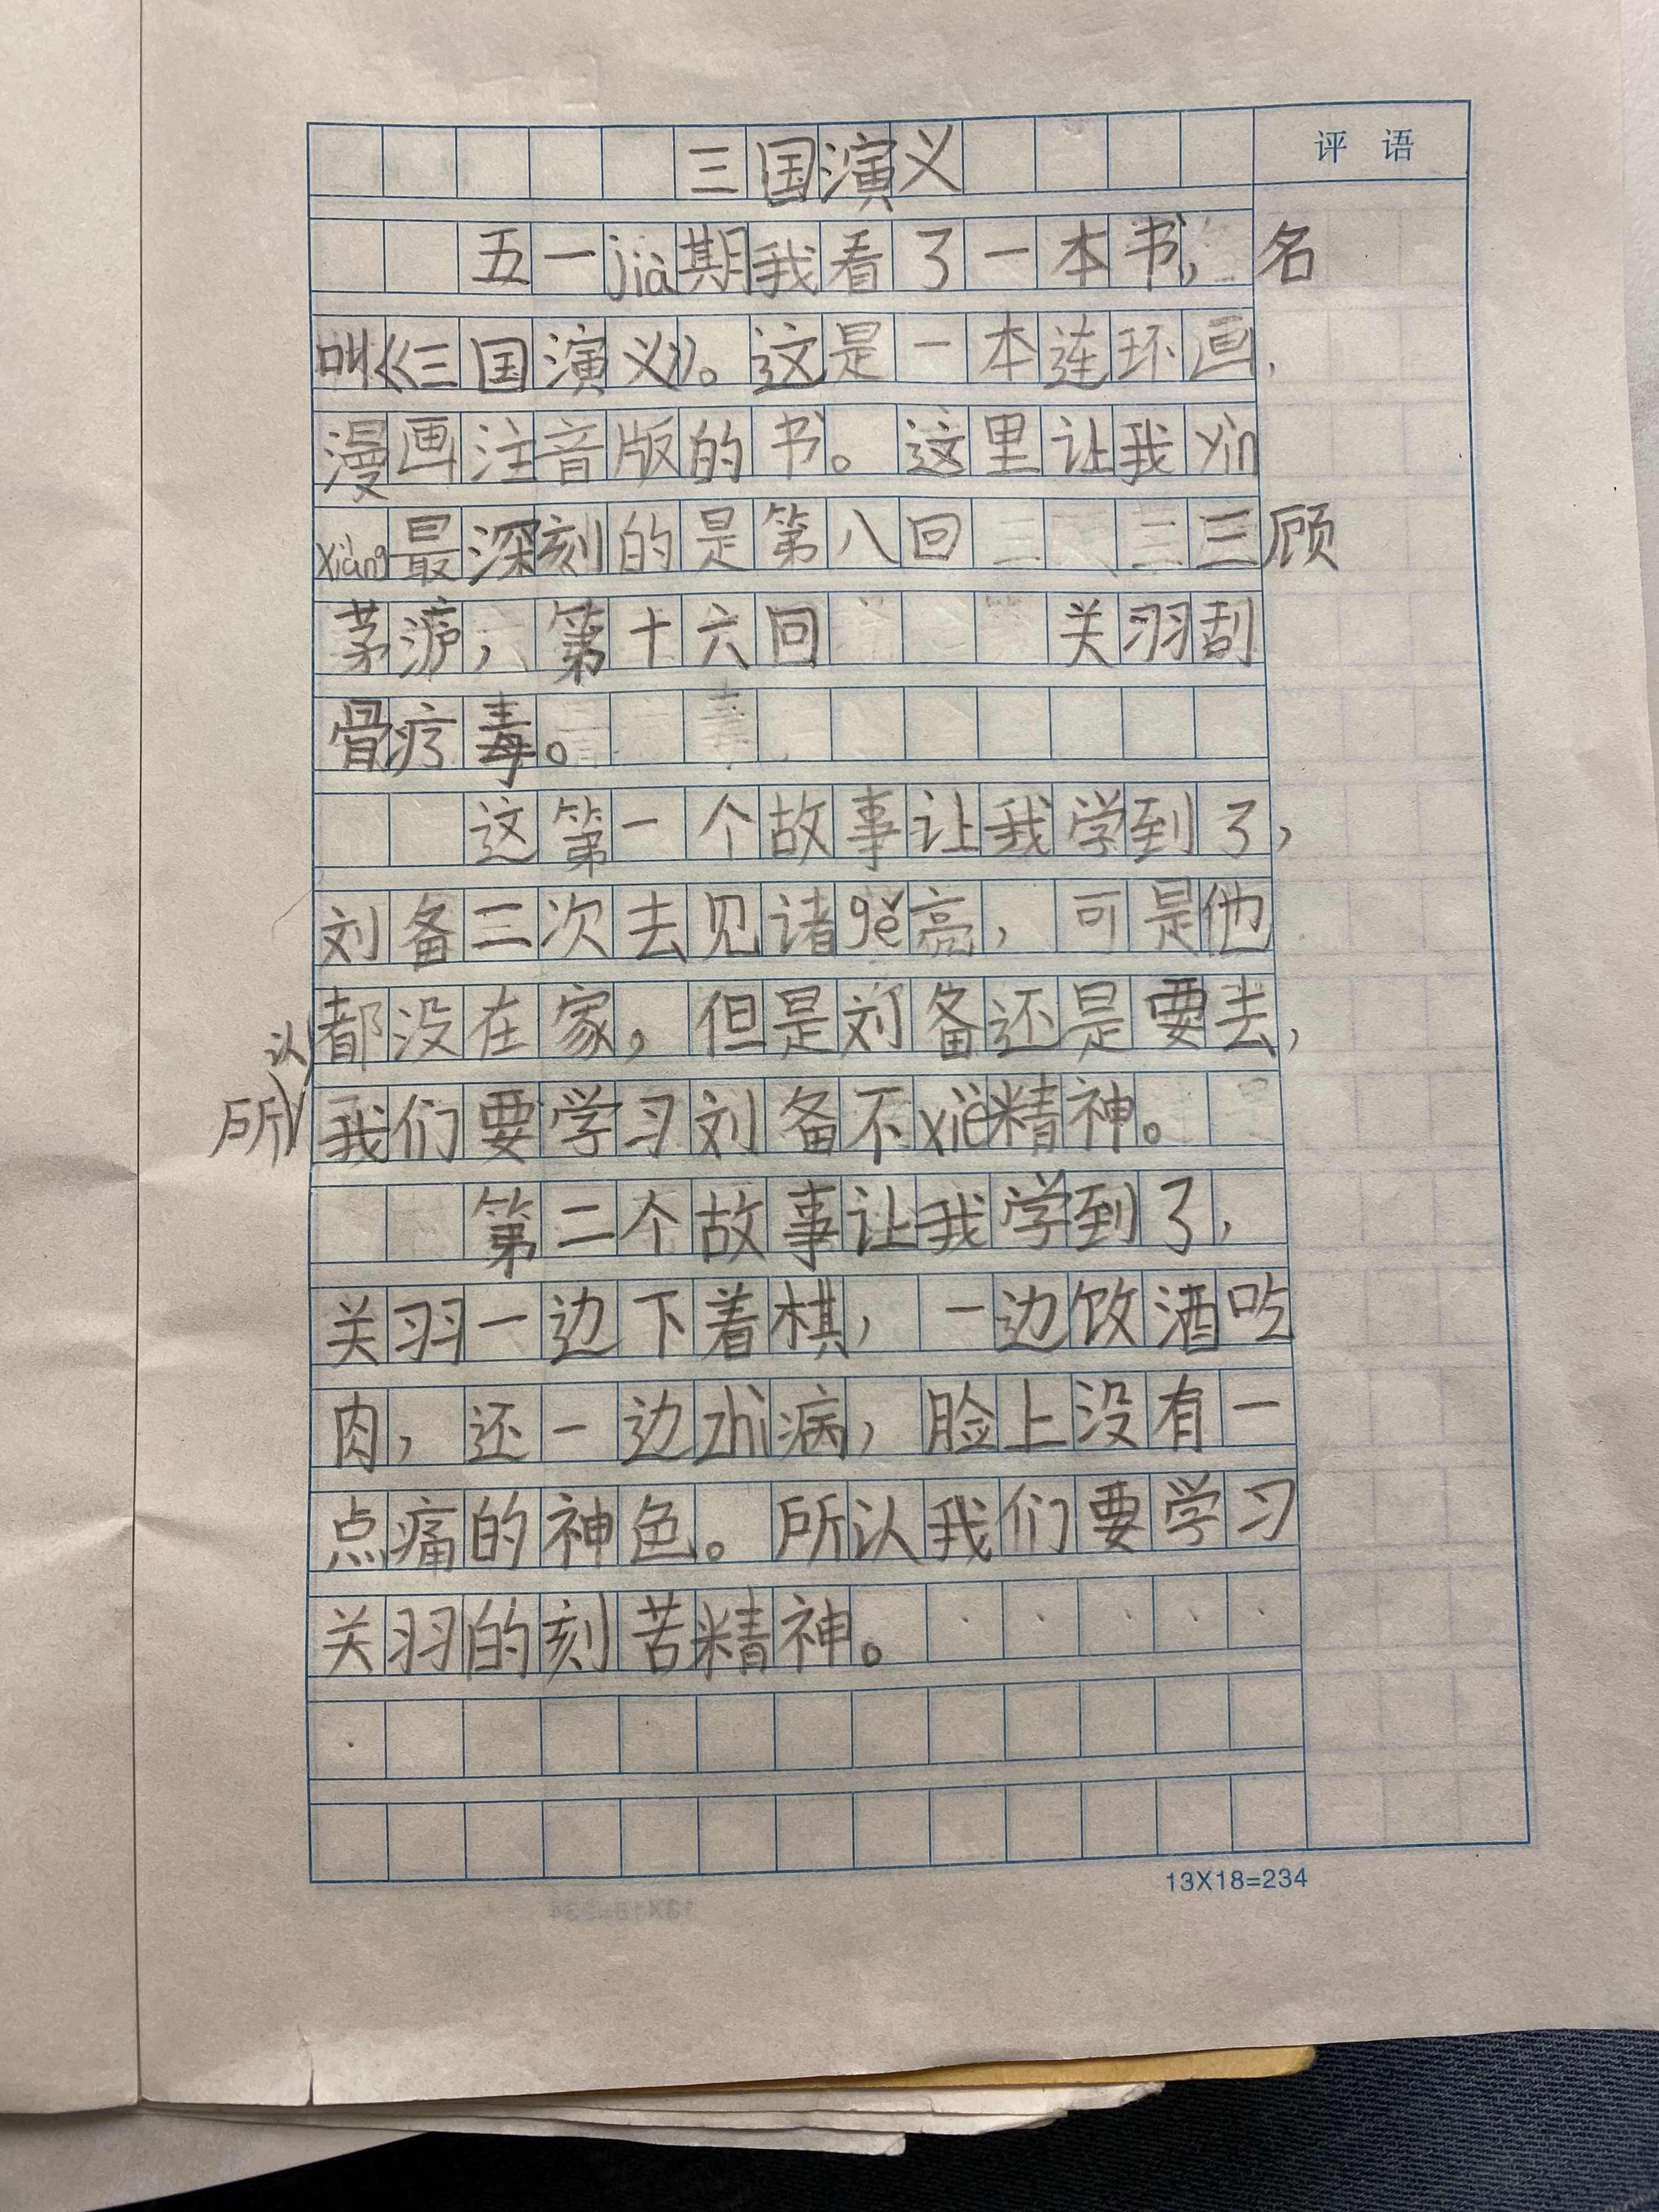 三国演义
评语
五一jià期我看了一本书，名
叫《三国演义》。这是一本连环画，
漫画注音版的书。这里让我yìn
xiàng最深刻的是第八回 三顾
茅，第十六回 关羽刮
骨疗毒。
这第一个故事让我学到了，
刘备三次去见诸gě亮，可是他
都没在家，但是刘备还是要去，
所认我们要学习刘备不xiè精神。
第二个故事让我学到了，
关羽一边下着棋，一边饮酒吃
肉，还一边zhì病，脸上没有一
点痛的神色。所认我们要学习
关羽的刻苦精神。
13X18=234